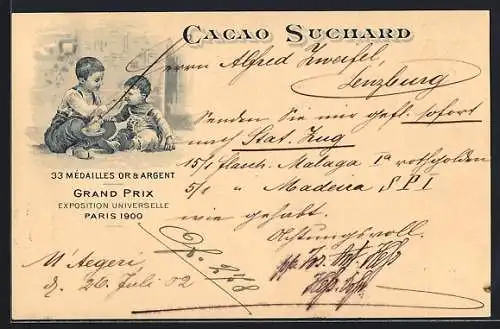 CACAO SUCHARD
Herrn Alfred Zweifel,
Lenzburg
Senden Sie mir gefl. sofort
nach Stat. Zug
15/1 flasch. Malaga Ia rothgolden
5/1 " Madeira S P I
wie gehabt.
Achtungsvoll.
33 MÉDAILLES OR & ARGENT
GRAND PRIX
EXPOSITION UNIVERSELLE
PARIS 1900
U'Aegeri
d. 26. Juli 02